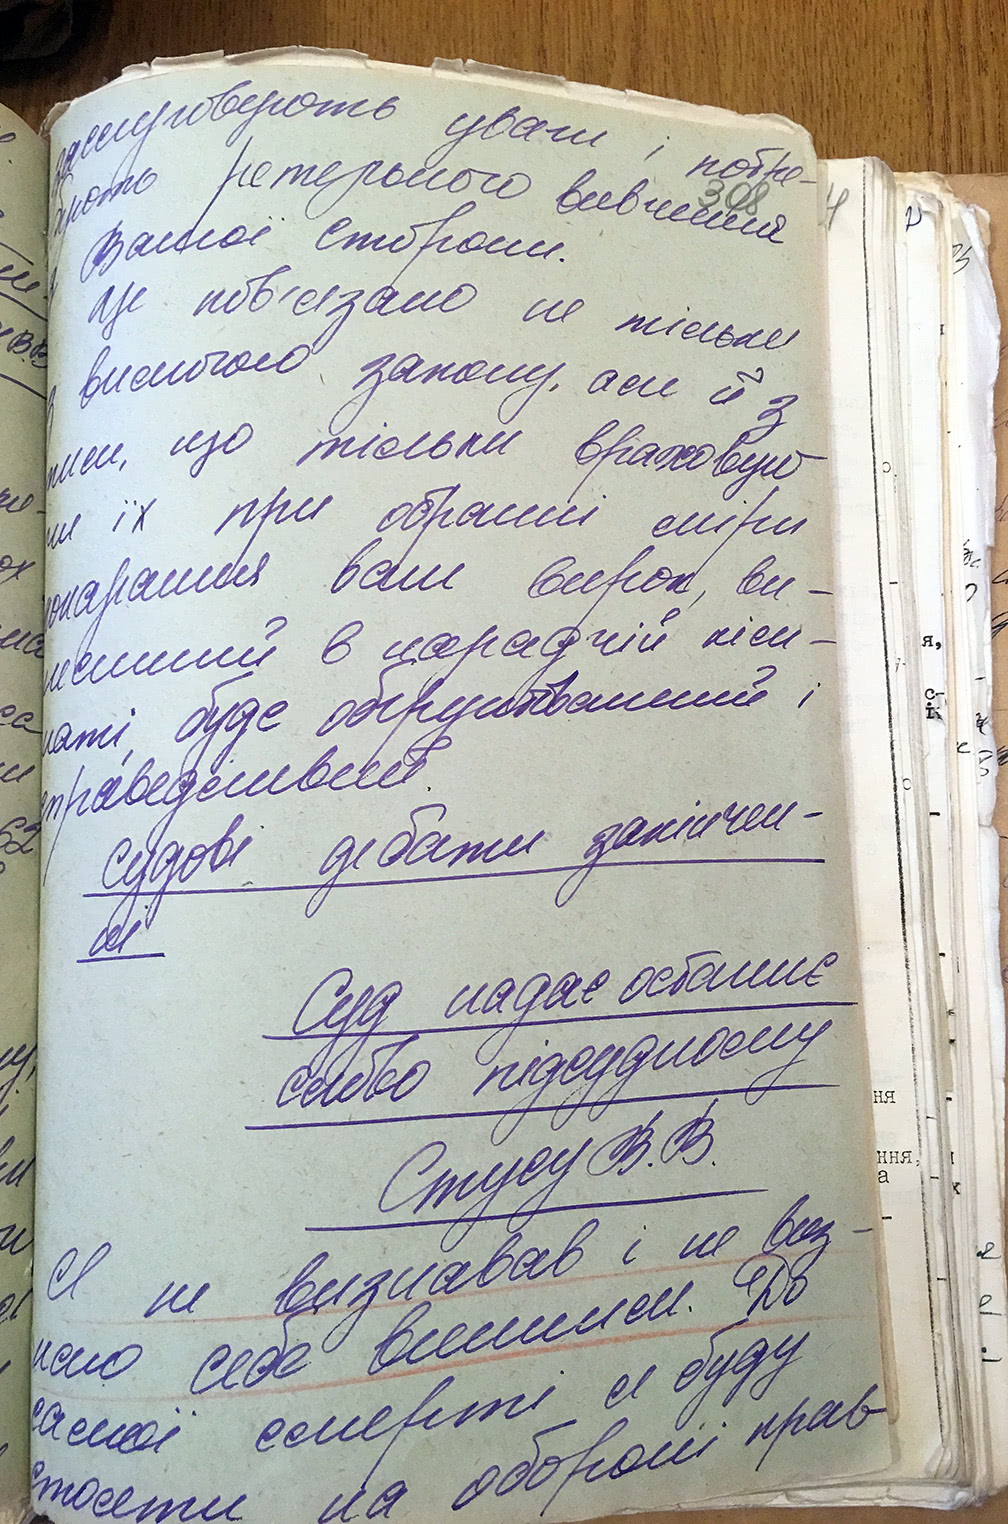 заслуговують уваги і потре-
бують ретельного вивчення
308
з Вашої сторони.
Це пов'язано не тільки
з вимогою закону, але й з
тим, що тільки врахував-
ши їх при обранні міри
покарання вами вирок, ви-
несений в нарадчій кім-
наті, буде обґрунтований і
справедливий.
Судові дебати закінчен-
ні
Суд надає останнє
слово підсудному
Стусу В.В.
Я не визнавав і не виз-
наю себе винним. До
самої смерті я буду
стояти на обороні прав